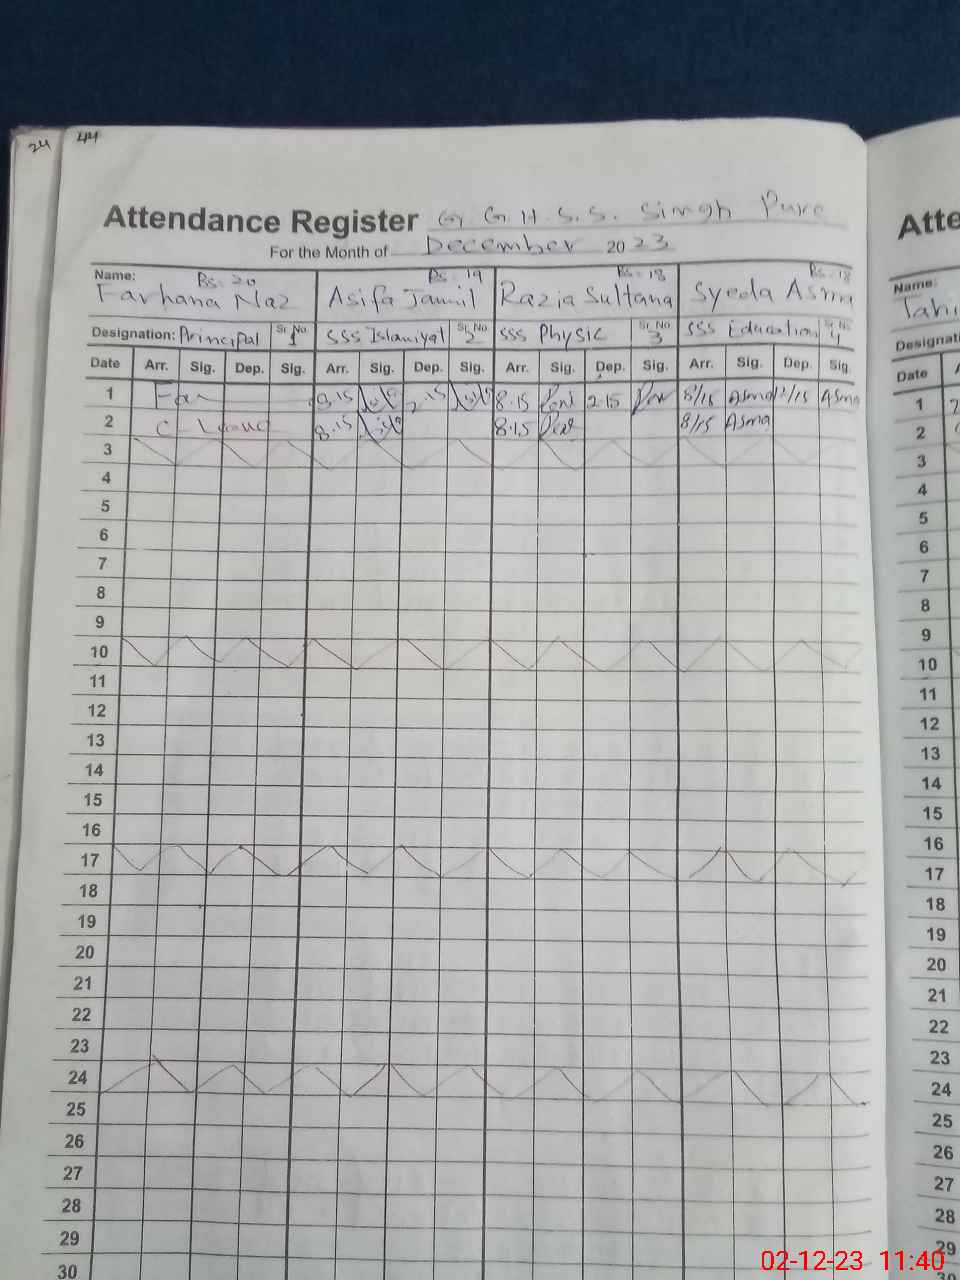 24 44
Attendance Register G.G.H.S.S. Singh Pura
For the Month of December 2023
Name: Bs=20 Bs=19 Bs=18 Bs=18
Farhana Naz Asifa Jamil Razia Sultana Syeda Asma
Designation: Principal Sr. No. 1 SSS Islamiyat Sr. No. 2 SSS Physic Sr. No. 3 SSS Education Sr. No. 4
Date Arr. Sig. Dep. Sig. Arr. Sig. Dep. Sig. Arr. Sig. Dep. Sig. Arr. Sig. Dep. Sig.
1 8.15 2.15 8.15 2.15 8/15 Asma 2/15 Asma
2 C. Leave 8.15 8.15 8/15 Asma
3
4
5
6
7
8
9
10
11
12
13
14
15
16
17
18
19
20
21
22
23
24
25
26
27
28
29
30
Atte
Name:
Tahi
Designati
Date
1
2
3
4
5
6
7
8
9
10
11
12
13
14
15
16
17
18
19
20
21
22
23
24
25
26
27
28
29
30
02-12-23 11:40